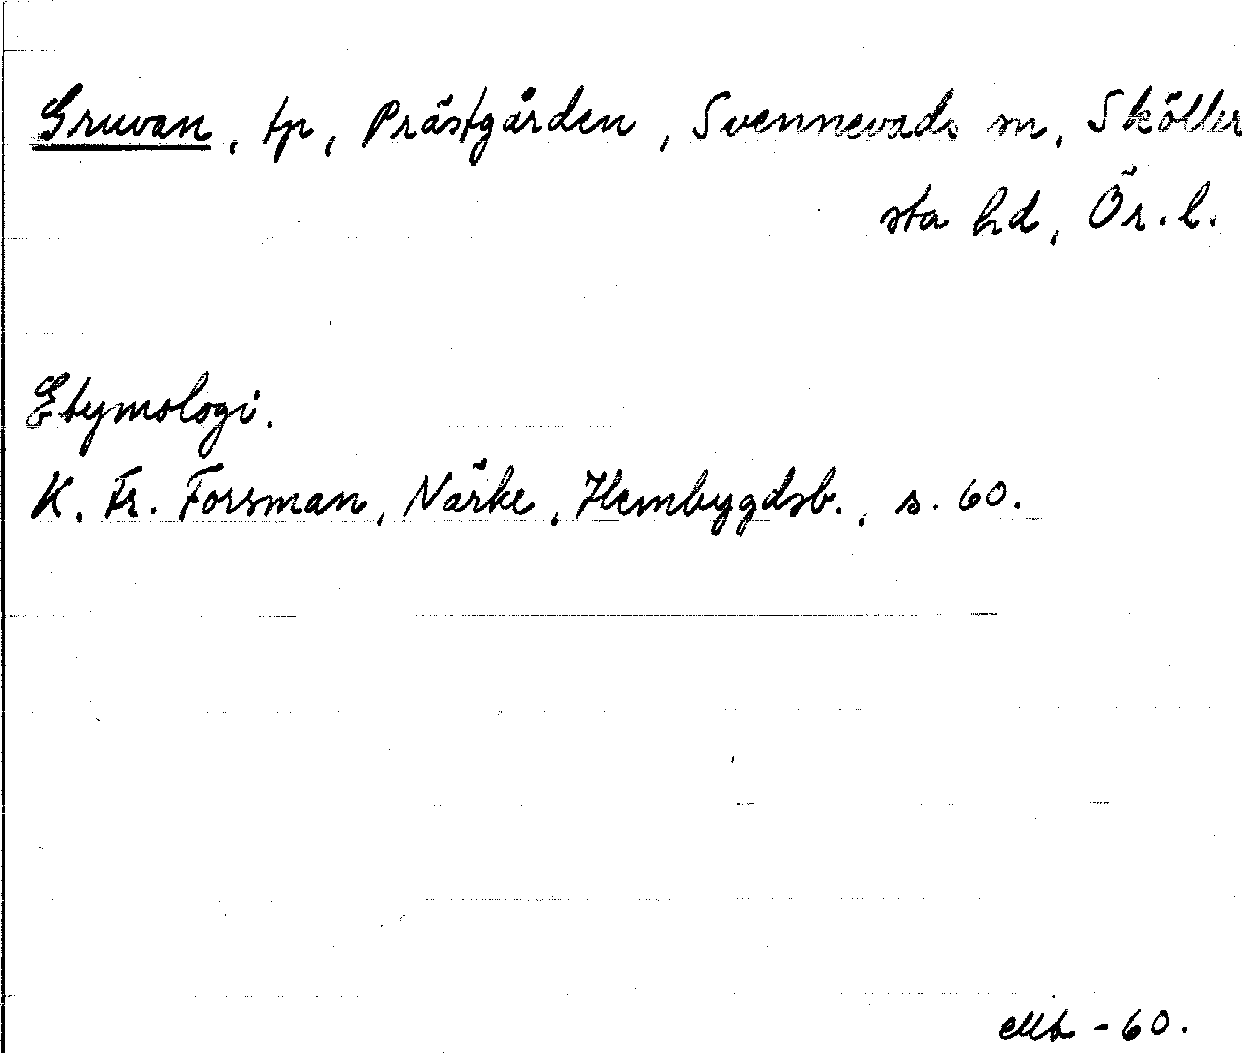 Gruvan, tp, Prästgården, Svennevads sn, Sköller
sta hd, Ör. l.
Etymologi.
K. Fr. Forsman, Närke, Hembygdsb., s. 60.
-60.